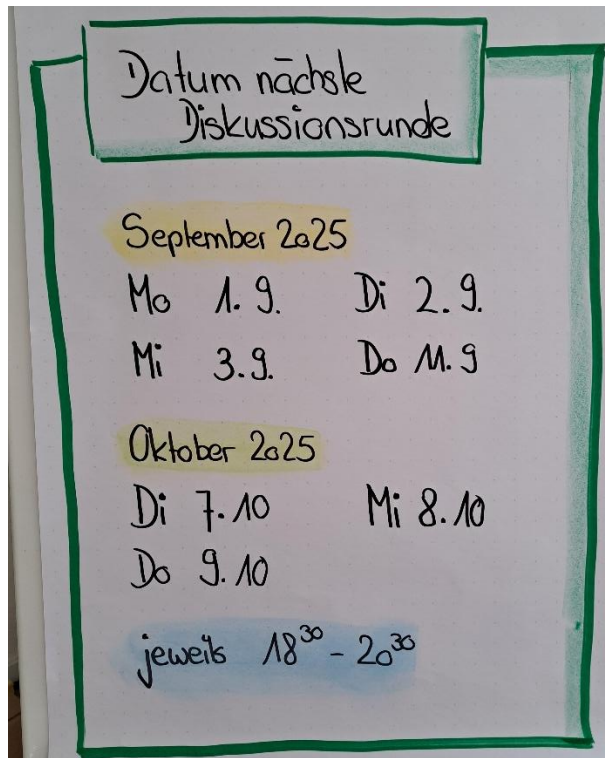 Datum nächste
Diskussionsrunde
September 2025
Mo 1.9. Di 2.9.
Mi 3.9. Do 11.9
Oktober 2025
Di 7.10 Mi 8.10
Do 9.10
jeweils 18³⁰ - 20³⁰